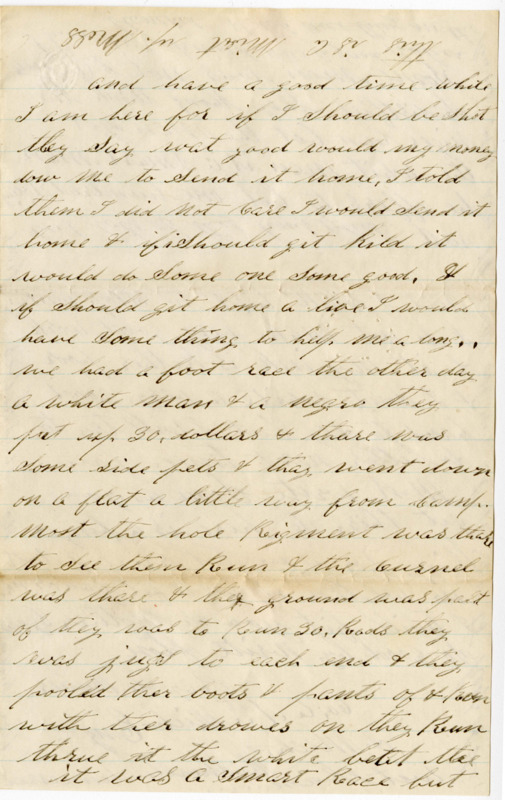 this is a mixt up Mess
and have a good time while
I am here for if I Should be Shot
they Say wat good would my money
dow me to Send it home, I told
them I did not Care I would Send it
home & if i Should git kild it
would do Some one Some good. &
if Should git home a live I would
have Some thing to help me a long..
we had a foot race the other day
a white man & a negro they
put up 30. dollars & thare was
Some Side bets & thay went down
on a flat a little way from Camp.
most the hole Regiment was thare
to See them Run & the Curnel
was thare & they ground was
of they was to Run 30, Rods they
was to each end & they
pooled ther boots & pants of & Run
with thier drowes on they Run
thrue it the white betet the
it was a Smart Race but